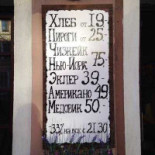 Хлеб от 19
Пироги от 25
Чизкейк
Нью-Йорк 75
Эклер 39
Американо 49
Медовик 50
21:30